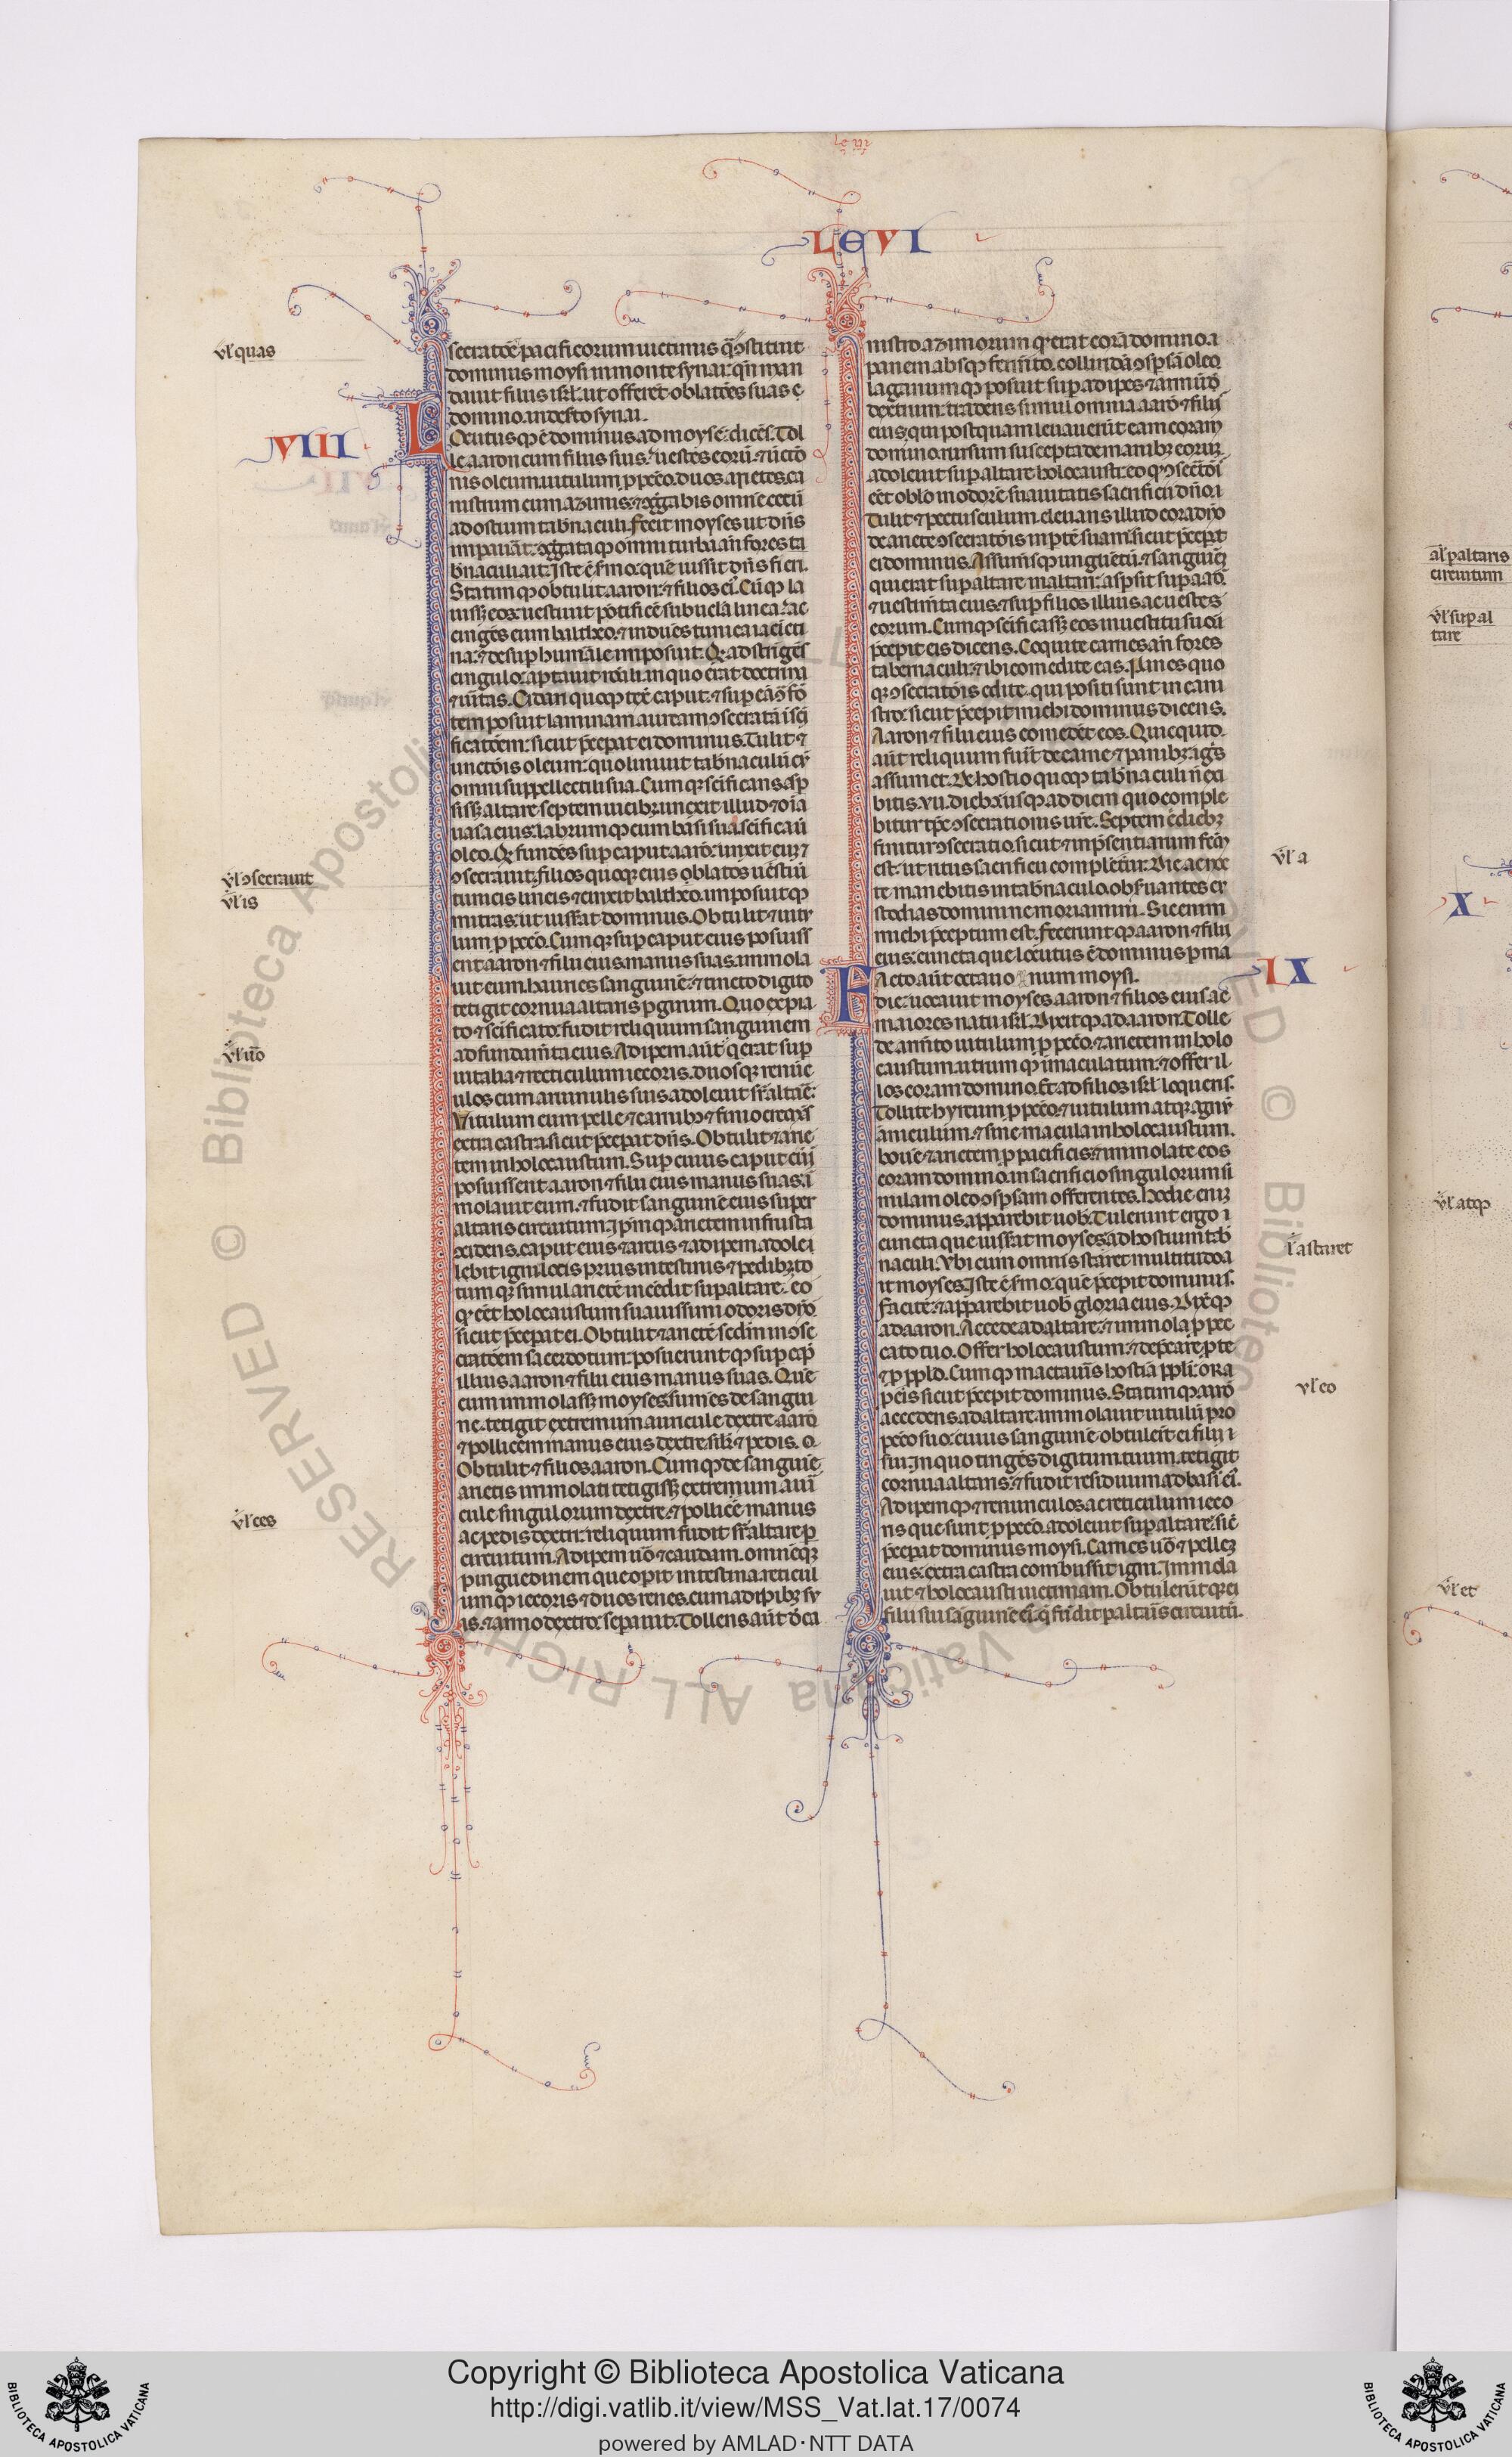 LEVI
vl' quas
secratõe pacificorum uictimis q̃ ↄstituit
dominus moysi in monte synai. qñ man
dauit filiis isrl' ut offerẽt oblatões suas
domino in deserto synai.
VIII
Locutusq; ẽ dominus ad moysẽ dicẽs. Tol
le aaron cum filiis suis. uestes eorũ ⁊ unctõ
nis oleum. uitulum p̱ pctõ. duos arietes. ca
nistrum cum azimis. ⁊ ↄg̃gabis omnẽ cetũ
ad ostium tab̃naculi. Fecit moyses ut dñs
impauãt. ↄg̃gataq; omni turba añ fores ta
b̃naculi ait. Iste ẽ s̃mo. quẽ iussit dñs fieri.
Statimq; obtulit aaron ⁊ filios ei'. Cũq; la
uissꝫ eos uestiuit põtificẽ subucula linea. ac
cingẽs eum baltheo. ⁊ induẽs tunica iacĩcti
na. ⁊ desup̱ humẽrale imposuit. Q̃ adstrigẽs
cingulo aptauit rõnali in quo erat doctrina
⁊ uẽritas. Cidari quoq; texit caput. ⁊ sup̱ eã ↄ̃ frõ
tem posuit laminam auream ↄsecratã i sc̃i
ficatõem. sicut p̃cep̱at ei dominus. Tulit ⁊
unctõis oleum. quo liniuit tab̃naculũ cũ
omni suppellectili sua. Cumq; sc̃ificans asp̱
sissꝫ altare septem uicibꝫ unxit illud ⁊ oĩa
uasa eius. labrumq; cum basi sua sc̃ificauit
oleo. Q̃ fundẽs sup̱ caput aarõ. unxit eum ⁊
vl' ↄsecrauit
ↄsecrauit. filios quoq; eius oblatos uestiuit
vl' is
tunicis lineis ⁊ cinxit baltheo. imposuitq;
mitras. ut iuss̃at dominus. Obtulit ⁊ uitu
lum p̱ pctõ. Cumq; sup̱ caput eius posuiss̃
ent aaron ⁊ filii eius manus suas. immola
uit eum. hauriẽs sanguinẽ. ⁊ tincto digito
tetigit cornua altaris p̱ girum. Quo expia
to ⁊ sc̃ificato. fudit reliquum sanguinem
vl' uo
ad fundam̃ta eius. Adipem aũt q̃ erat sup̱
uitalia ⁊ reticulum iecoris. duosq; renũc
ulos cum aruinulis suis adoleuit sr̃ altare.
Uitulum cum pelle ⁊ carnibꝫ ⁊ fimo cremãs
extra castra sicut p̃cep̱at dñs. Obtulit ⁊ arie
tem in holocaustum. Sup̱ cuius caput cũ
posuissent aaron ⁊ filii eius manus suas. i
molauit eum. ⁊ fudit sanguinẽ eius super
altaris circuitum. Ip̃mq; arietem in frusta
ↄcidens. caput eius ⁊ artus ⁊ adipem adolei
lebit igni. lotis prius intestinis ⁊ pedibꝫ. to
tumq; simul arietẽ incẽdit sup̱ altare. eo
q̃ eẽt holocaustum suauissimi odoris dño
sicut p̃cep̱at ei. Obtulit ⁊ arietẽ sc̃dm in ↄse
cratõem sacerdotum. posueruntq; sup̱ cap̱
illius aaron ⁊ filii eius manus suas. Quẽ
cum immolassꝫ moyses. sumẽs de sangui
ne. tetigit extremum auricule dextre aarõ
⁊ pollicem manus eius dextre. sil'r ⁊ pedis.
Obtulit ⁊ filios aaron. Cumq; de sanguine
arietis immolati tetigissꝫ extremum auri
cule singulorum dextre. ⁊ pollicẽ manus
vl' ces
ac pedis dextri. reliquum fudit sr̃ altare p̱
circuitum. Adipem uõ ⁊ caudam. omnẽq;
pinguedinem que op̱it intestina. reticul
umq; iecoris. ⁊ duos renes. cum adipibꝫ su
is. ⁊ armo dextro sep̱auit. Tollens aũt d' ca
nistro azimorum q̃ erat corã domino. i
panem absq; ferm̃to. colliridã ↄsp̱sã oleo
laganumq; posuit sup̱ adipes. ⁊ armũ
dextrum. tradens simul omnia aarõ ⁊ filiis
eius. qui postquam leuauerũt eam coram
domino. rursum suscepta de manibꝫ eorum
adoleuit sup̱ altare holocausti. eo q̃ ↄsectõis
eẽt oblõ in odorẽ suauitatis sacrificii dño.
Tulit ⁊ pectusculum. eleuans illud corã dño
de ariete ↄsecratõis in p̱tẽ suam. sicut p̃cep̱at
ei dominus. Assumẽsq; ungentũ. ⁊ sanguinẽ
qui erat sup̱ altare in altari. asp̱sit sup̱ aarõ
⁊ uestim̃ta eius. ⁊ sup̱ filios illius ac uestes
eorum. Cumq; sc̃ificassꝫ eos in uestitu suo
p̃cepit eis dicens. Coquite carnes añ fores
tabernaculi. ⁊ ibi comedite eas. Panes quo
q; ↄsecratõis edite. qui positi sunt in cani
stro. sicut p̃cepit michi dominus dicens.
Aaron ⁊ filii eius comedẽt eos. Quicquid
aũt reliquum fuĩt de carne ⁊ panibꝫ. ignis
assumet. De hostio quoq; tab̃naculi ñ exi
bitis. vii. diebꝫ. usq; ad diem quo comple
bitur tp̃s ↄsecrationis ur̃e. Septem ẽ diebꝫ
vl' a
finitur ↄsecratio. sicut ⁊ in p̃sentiarum fcm̃
est. ut ritus sacrificii complet̃ur. Die ac noc
te manebitis in tab̃naculo. obs̃uantes cu
stodias domini ne moriamini. Sic enim
michi p̃ceptum est. Feceruntq; aaron ⁊ filii
eius. cuncta que locutus ẽ dominus p̱ ma
IX
Facto aũt octauo num moysi.
die. uocauit moyses aaron ⁊ filios eius ac
maiores natu isrl'. Dixitq; ad aaron. Tolle
de arm̃to uitulum p̱ pctõ. ⁊ arietem in holo
caustum. utrumq; ĩmaculatum. ⁊ offer il
los coram domino. Et ad filios isrl' loquẽris.
Tollite hyrcum p̱ pctõ. ⁊ uitulum atq; agnũ
anniculum. ⁊ sine macula in holocaustum.
bouẽ ⁊ arietem. p̱ pacificis. ⁊ immolate eos
coram domino. in sacrificio singulorum si
milam oleo ↄsp̱sam offerentes. Hodie enim
dominus apparebit uob̃. Tulerunt ergo
cuncta que iuss̃at moyses. ad hostium tab̃
vl' astaret
naculi. Vbi cum omnis staret multitudo. a
it moyses. Iste ẽ s̃mo. quẽ p̃cepit dominus.
Facite. ⁊ apparebit uob̃ gloria eius. Dixitq;
ad aaron. Accede ad altare. ⁊ immola p̱ pec
cato tuo. Offer holocaustum. ⁊ dep̃care p̱ te
⁊ p̱ pp̱lo. Cumq; mactau̾is hostiã pp̱li. ora
vl' eo
p̱ eis sicut p̃cepit dominus. Statimq; aarõ
accedens ad altare. immolauit uitulũ pro
pctõ suo. cuius sanguinẽ obtulerũt ei filii
sui. In quo tingẽs digitum. tetigit
cornua altaris. ⁊ fudit residuum ad basĩ ei'.
Adipemq; ⁊ renunculos ac reticulum ieco
ris que sunt p̱ pctõ. adoleuit sup̱ altare. sic̃
p̃cep̱at dominus moysi. Carnes uõ ⁊ pellem
eius. extra castra combussit igni. Immola
uit ⁊ holocausti uictimam. Obtulerũtq; ei
filii sui sãguinẽ ei'. q̃ fudit p̱ altar̃is circuitũ.
al' p̱ altaris
circuitum
vl' sup̱ al
tare
X
vl' atq;
vl' et
Copyright © Biblioteca Apostolica Vaticana
http://digi.vatlib.it/view/MSS_Vat.lat.17/0074
powered by AMLAD·NTT DATA
BIBLIOTECA APOSTOLICA VATICANA
BIBLIOTECA APOSTOLICA VATICANA
© Biblioteca Apostolica Vaticana ALL RIGHTS RESERVED